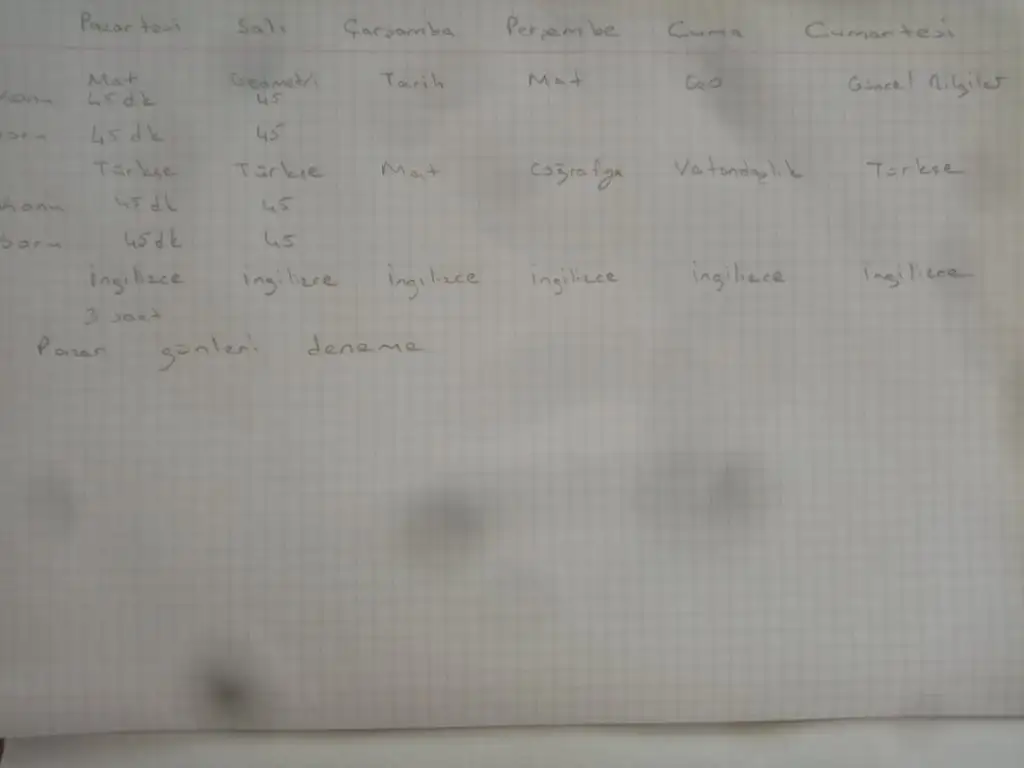 Pazartesi Salı Çarşamba Perşembe Cuma Cumartesi
Mat Geometri Tarih Mat Geo Güncel Bilgiler
konu 45 dk 45
soru 45 dk 45
Türkçe Türkçe Mat Coğrafya Vatandaşlık Türkçe
konu 45 dk 45
soru 45 dk 45
İngilizce İngilizce İngilizce İngilizce İngilizce İngilizce
3 saat
Pazar günleri deneme